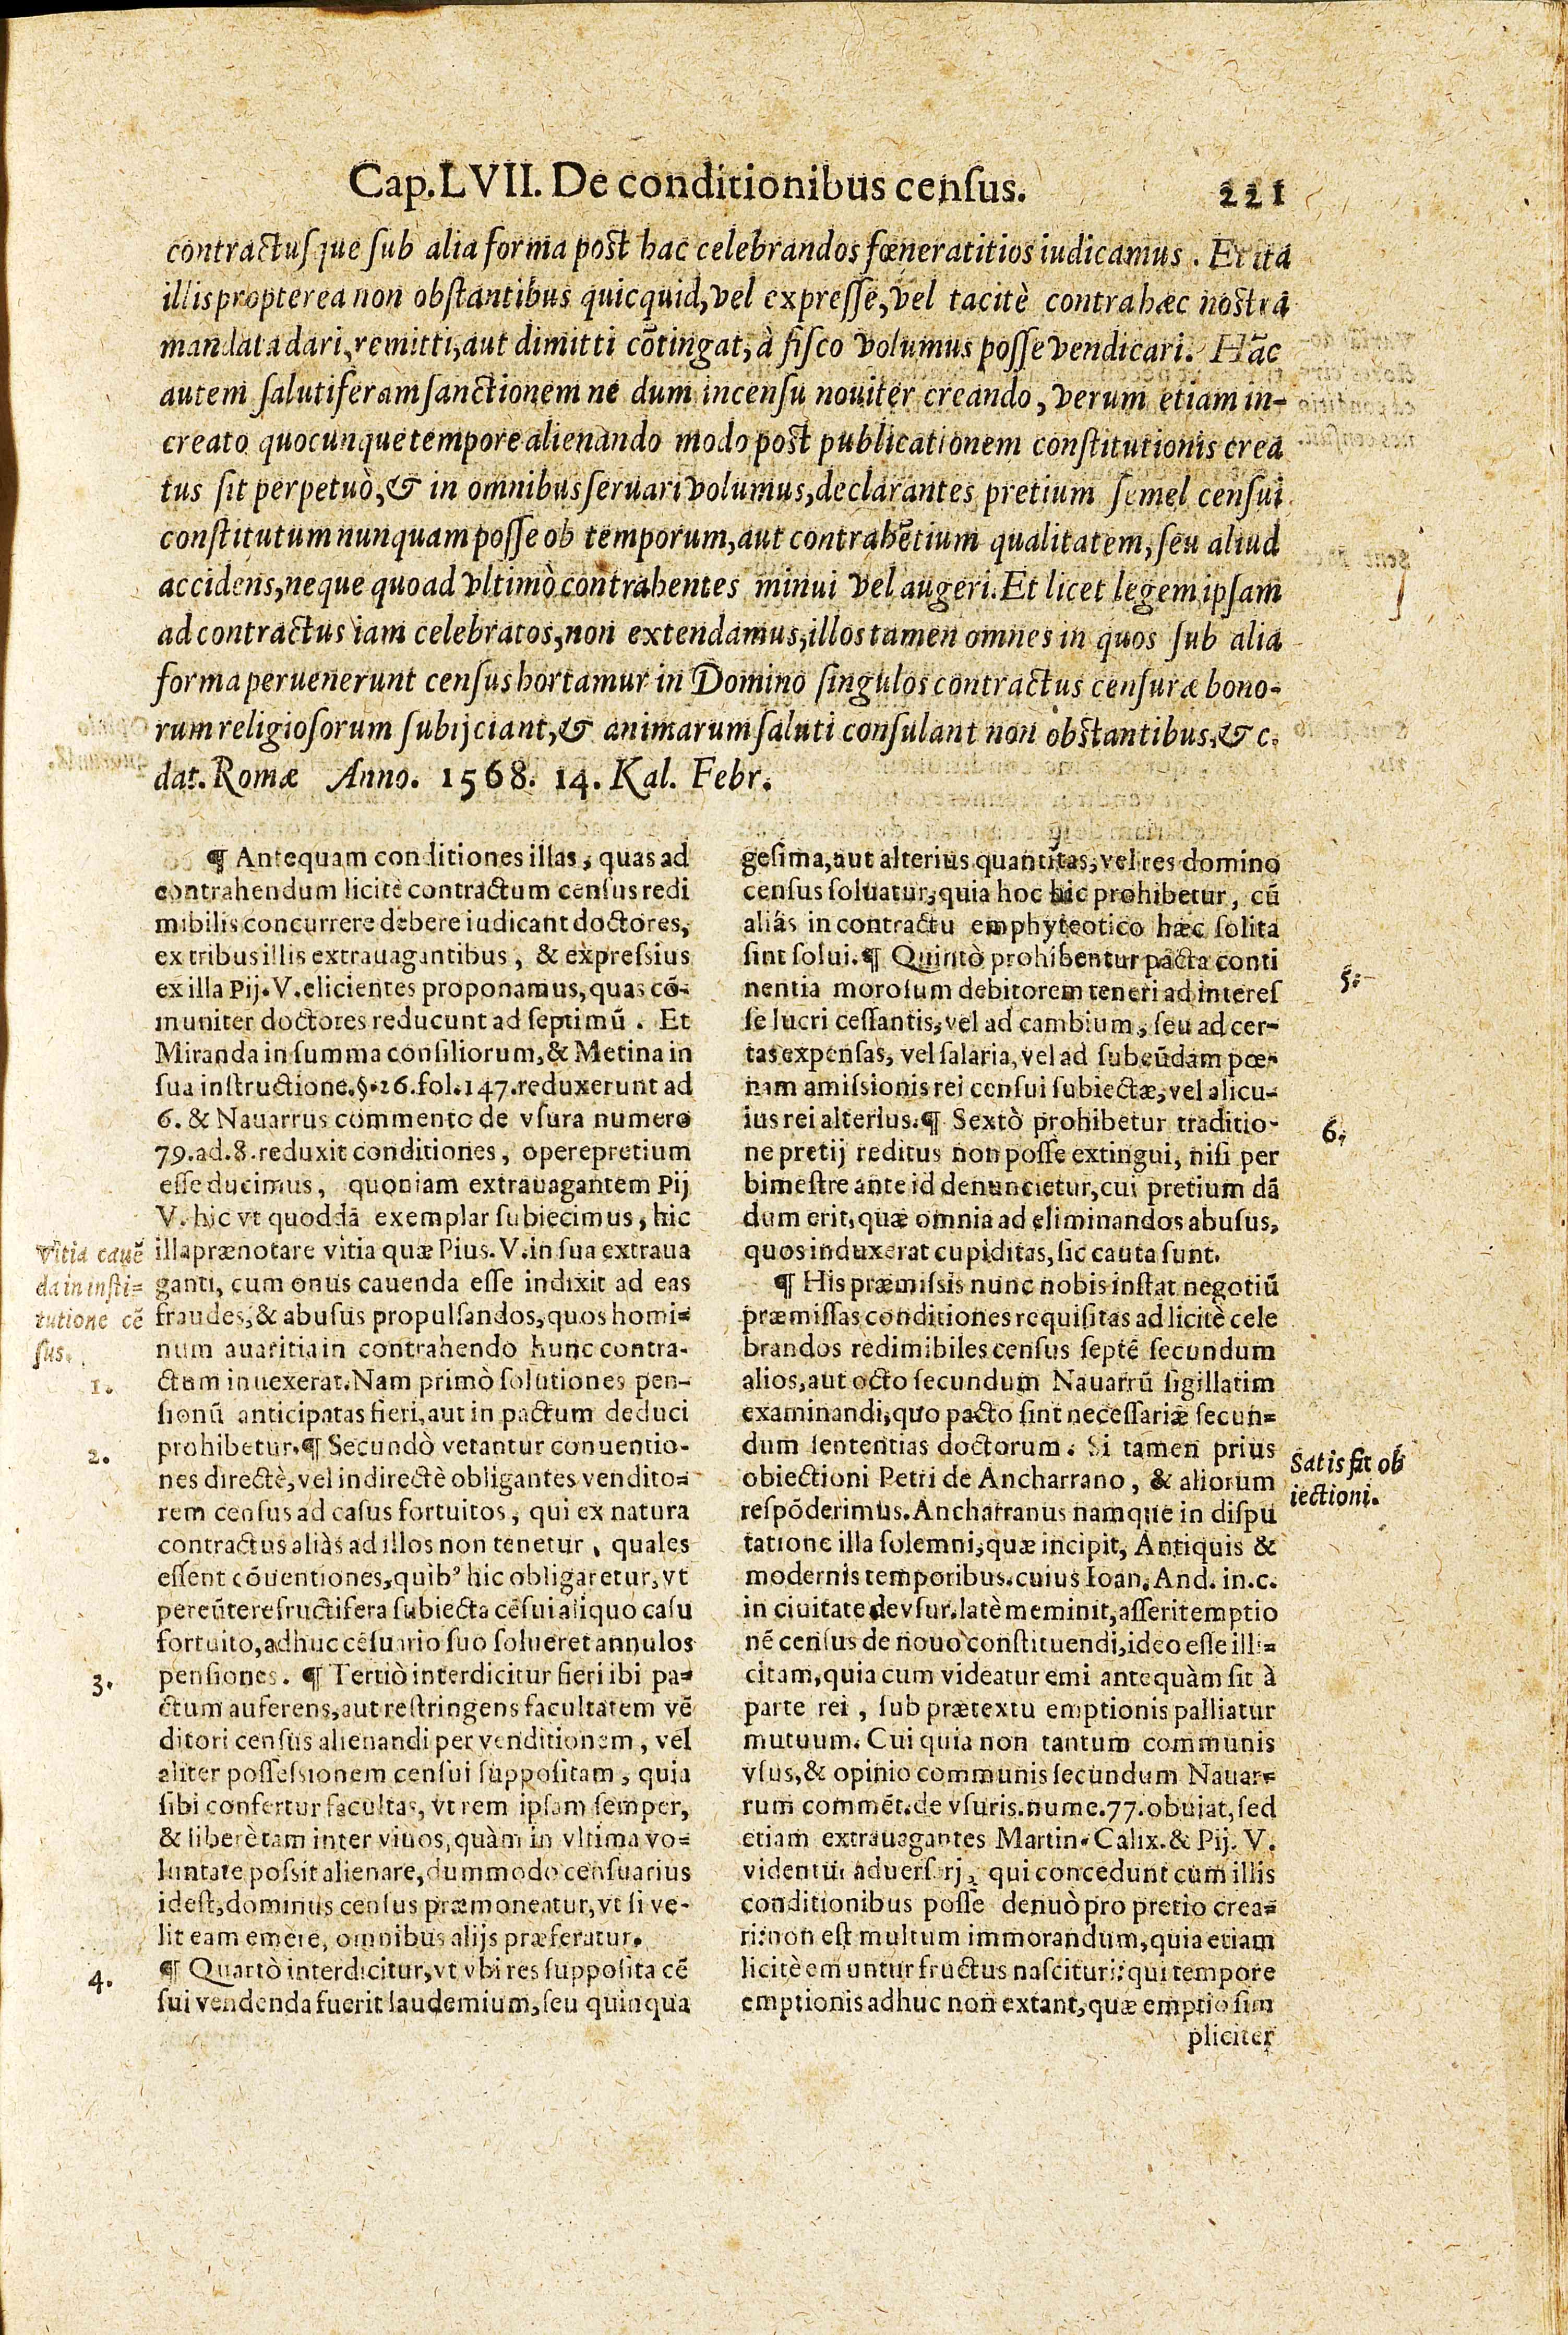 Cap.LVII. De conditionibus census. 221
contractusque sub alia forma post hac celebrandos fœneratitios iudicamus. Et ita
illis propterea non obstantibus quicquid, vel expresse, vel tacitè contra hæc nostra
mandata dari, remitti, aut dimitti cōtingat, à fisco volumus posse vendicari. Hāc
autem salutiferam sanctionem ne dum in censu noviter creando, verum etiam in-
creato quocunque tempore alienando modo post publicationem constitutionis crea
tus sit perpetuò, & in omnibus seruari volumus, declarantes pretium semel censui
constitutum nunquam posse ob temporum, aut contrahētium qualitatem, seu aliud
accidens, neque quoad vltimò contrahentes minui vel augeri. Et licet legem ipsam
ad contractus iam celebratos, non extendamus, illos tamen omnes in quos sub alia
forma peruenerunt census hortamur in Domino singulos contractus censuræ bono-
rum religiosorum subijciant, & animarum saluti consulant non obstantibus, & c.
dat. Romæ Anno. 1568. 14. Kal. Febr.
¶ Antequam conditiones illas, quas ad
contrahendum licitè contractum census redi
mibilis concurrere debere iudicant doctores,
ex tribus illis extrauagantibus, & expressius
ex illa Pij. V. elicientes proponamus, quas cō-
muniter doctores reducunt ad septimū. Et
Miranda in summa consiliorum, & Metina in
sua instructione. §. 26. fol. 147. reduxerunt ad
6. & Nauarrus commento de vsura numero
79. ad. 8. reduxit conditiones, operepretium
esse ducimus, quoniam extrauagantem Pij
V. hic vt quoddā exemplar subiecimus, hic
illa prænotare vitia quæ Pius. V. in sua extraua
ganti, cum onus cauenda esse indixit ad eas
fraudes, & abusus propulsandos, quos homi-
num auaritia in contrahendo hunc contra-
ctum inuexerat. Nam primò solutiones pen-
sionū anticipatas fieri, aut in pactum deduci
prohibetur. ¶ Secundò vetantur conuentio-
nes directè, vel indirectè obligantes vendito-
rem census ad casus fortuitos, qui ex natura
contractus aliàs ad illos non tenetur, quales
essent cōuentiones, quibꝰ hic obligaretur, vt
pereūte re fructifera subiecta cēsui aliquo casu
fortuito, adhuc cēsuario suo solueret annulos
pensiones. ¶ Tertiò interdicitur fieri ibi pa-
ctum auferens, aut restringens facultatem vē
ditori census alienandi per venditionem, vel
aliter possessionem censui suppositam, quia
sibi confertur facultas, vt rem ipsam semper,
& liberè tam inter viuos, quàm in vltima vo-
luntate possit alienare, dummodo censuarius
idest, dominus census præmoneatur, vt si ve-
lit eam emere, omnibus alijs præferatur.
¶ Quartò interdicitur, vt vbi res supposita cē
sui vendenda fuerit laudemium, seu quinqua
Vitia cauē
da in insti-
tutione cē
sus.
1.
2.
3.
4.
gesima, aut alterius quantitas, vel res domino
census soluatur, quia hoc hic prohibetur, cū
aliâs in contractu emphyteotico hæc solita
sint solui. ¶ Quintò prohibentur pacta conti
nentia morosum debitorem teneri ad interes
se lucri cessantis, vel ad cambium, seu ad cer-
tas expensas, vel salaria, vel ad subeūdam pœ-
nam amissionis rei censui subiectæ, vel alicu-
ius rei alterius. ¶ Sextò prohibetur traditio-
ne pretij reditus non posse extingui, nisi per
bimestre ante id denuncietur, cui pretium dā
dum erit, quæ omnia ad eliminandos abusus,
quos induxerat cupiditas, sic cauta sunt.
¶ His præmissis nunc nobis instat negotiū
præmissas conditiones requisitas ad licitè cele
brandos redimibiles census septē secundum
alios, aut octo secundum Nauarrū sigillatim
examinandi, quo pacto sint necessariæ secun-
dum sententias doctorum. Si tamen prius
obiectioni Petri de Ancharrano, & aliorum
respōderimus. Ancharranus namque in dispu
tatione illa solemni, quæ incipit, Antiquis &
modernis temporibus. cuius Ioan. And. in. c.
in ciuitate de vsur. latè meminit, asserit emptio
nē census de nouo constituendi, ideo esse illi-
citam, quia cum videatur emi antequàm sit à
parte rei, sub prætextu emptionis palliatur
mutuum. Cui quia non tantum communis
vsus, & opinio communis secundum Nauar-
rum commēt. de vsuris. nume. 77. obuiat, sed
etiam extrauagantes Martin. Calix. & Pij. V.
videntur aduersarij, qui concedunt cum illis
conditionibus posse denuò pro pretio crea-
ri: non est multum immorandum, quia etiam
licitè emuntur fructus nascituri: qui tempore
emptionis adhuc non extant, quæ emptio sim
pliciter
5.
6.
Satis fit ob
iectioni.